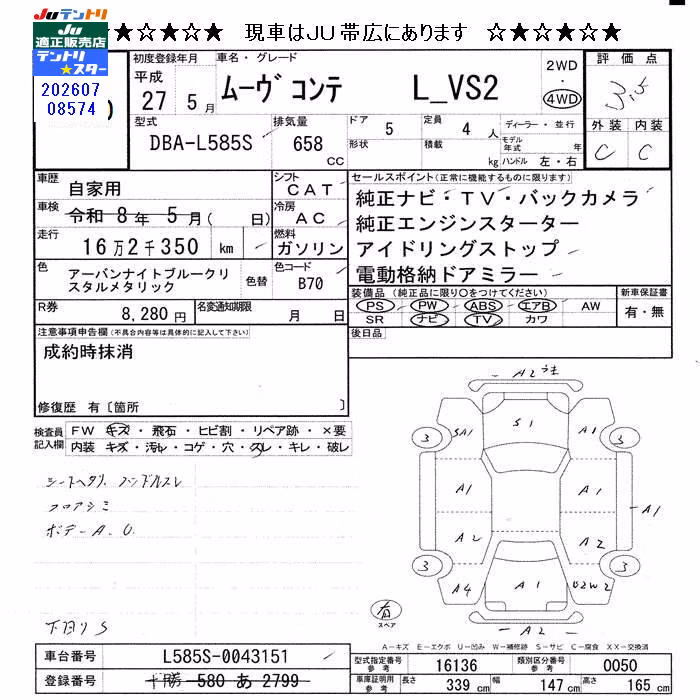 Juテントリ
JU
適正販売店
テントリ
★スター
★☆★☆★ 現車はJU帯広にあります ☆★☆★☆★
202607
08574
初度登録年月
平成
27 5 月
車名・グレード
ムーヴ コンテ L_VS2
2WD
・
4WD
評価点
3.5
外装 内装
C C
型式
DBA-L585S
排気量
658
CC
ドア
5
形状
定員
4 人
積載
kg
ディーラー・並行
モデル年式 年
ハンドル 左・右
車歴
自家用
シフト
CAT
車検
令和 8年 5月( 日)
冷房
AC
走行
16万2千350 km
燃料
ガソリン
色
アーバンナイトブルークリ
スタルメタリック
色替
色コード
B70
R券
8,280円
名変通知期限
月 日
セールスポイント(正常に機能するものに限ります)
純正ナビ・TV・バックカメラ
純正エンジンスターター
アイドリングストップ
電動格納ドアミラー
装備品(純正品に限り○をつけてください)
PS PW ABS エアB AW
SR ナビ TV カワ
新車保証書
有・無
後日品
注意事項申告欄(不具合内容等は具体的に記入して下さい)
成約時抹消
修復歴 有〔箇所 〕
検査員記入欄
FW キズ・飛石・ヒビ割・リペア跡・×要
内装 キズ・汚れ・コゲ・穴・スレ・キレ・破レ
シートヘタリ ハンドルスレ
フロアシミ
ボデーA.U
下回りS
A2
S1
3 SA1 A1 3
A1 A1 A1
A2 A2
3 A4 A1 U2W2 3
A2
有
スペア
A−キズ E−エクボ U−凹み W−補修跡 S−サビ C−腐食 XX−交換済
車台番号
L585S-0043151
登録番号
十勝 580 あ 2799
型式指定番号
参考
16136
類別区分番号
参考
0050
車庫証明用
参考
長さ 339 cm 幅 147 cm 高さ 165 cm